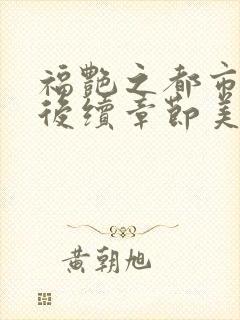 福艷之都市
後續章節美
黃朝旭